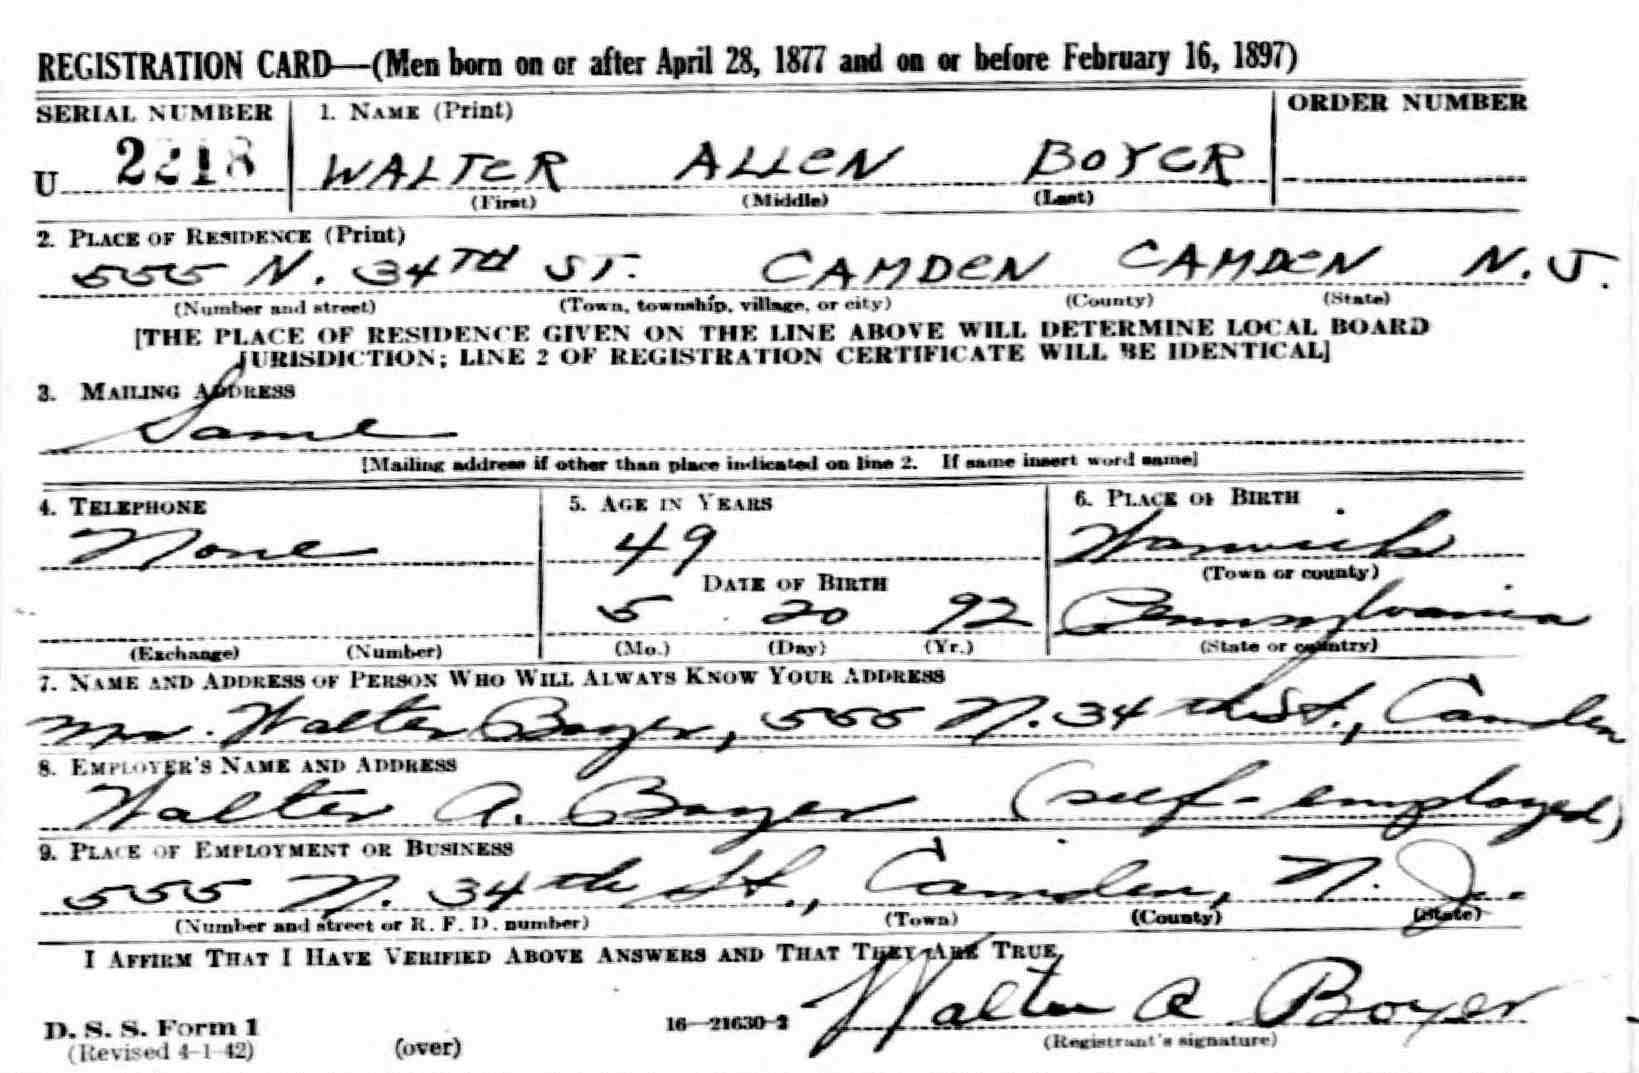 REGISTRATION CARD—(Men born on or after April 28, 1877 and on or before February 16, 1897)
SERIAL NUMBER 1. NAME (Print) ORDER NUMBER
U 2218 WALTER ALLEN BOYER
(First) (Middle) (Last)
2. PLACE OF RESIDENCE (Print)
555 N. 34TH ST. CAMDEN CAMDEN N.J.
(Number and street) (Town, township, village, or city) (County) (State)
[THE PLACE OF RESIDENCE GIVEN ON THE LINE ABOVE WILL DETERMINE LOCAL BOARD
JURISDICTION; LINE 2 OF REGISTRATION CERTIFICATE WILL BE IDENTICAL]
3. MAILING ADDRESS
Same
[Mailing address if other than place indicated on line 2. If same insert word same]
4. TELEPHONE 5. AGE IN YEARS 6. PLACE OF BIRTH
None 49 Warwick
(Town or county)
DATE OF BIRTH
5 20 92 Pennsylvania
(Exchange) (Number) (Mo.) (Day) (Yr.) (State or country)
7. NAME AND ADDRESS OF PERSON WHO WILL ALWAYS KNOW YOUR ADDRESS
Mrs. Walter Boyer, 555 N. 34th St., Camden
8. EMPLOYER'S NAME AND ADDRESS
Walter A. Boyer (self-employed)
9. PLACE OF EMPLOYMENT OR BUSINESS
555 N. 34th St., Camden, N. J.
(Number and street or R. F. D. number) (Town) (County) (State)
I AFFIRM THAT I HAVE VERIFIED ABOVE ANSWERS AND THAT THEY ARE TRUE.
Walter A Boyer
D. S. S. Form 1 16—21630-2
(Revised 4-1-42) (over) (Registrant's signature)